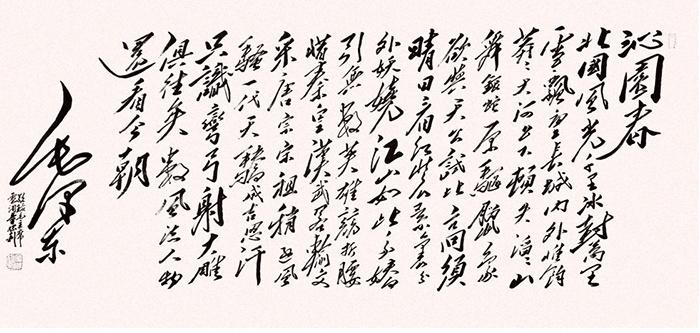 沁園春
北國風光千里冰封萬里
雪飄望長城内外惟餘
莽莽大河上下頓失滔滔山
舞銀蛇原驅臘象
欲與天公試比高須
晴日看紅裝素裹分
外妖嬈江山如此多嬌
引無數英雄競折腰
惜秦皇漢武略輸文
采唐宗宋祖稍遜風
騷一代天驕成吉思汗
只識彎弓射大雕
俱往矣數風流人物
還看今朝
毛澤東